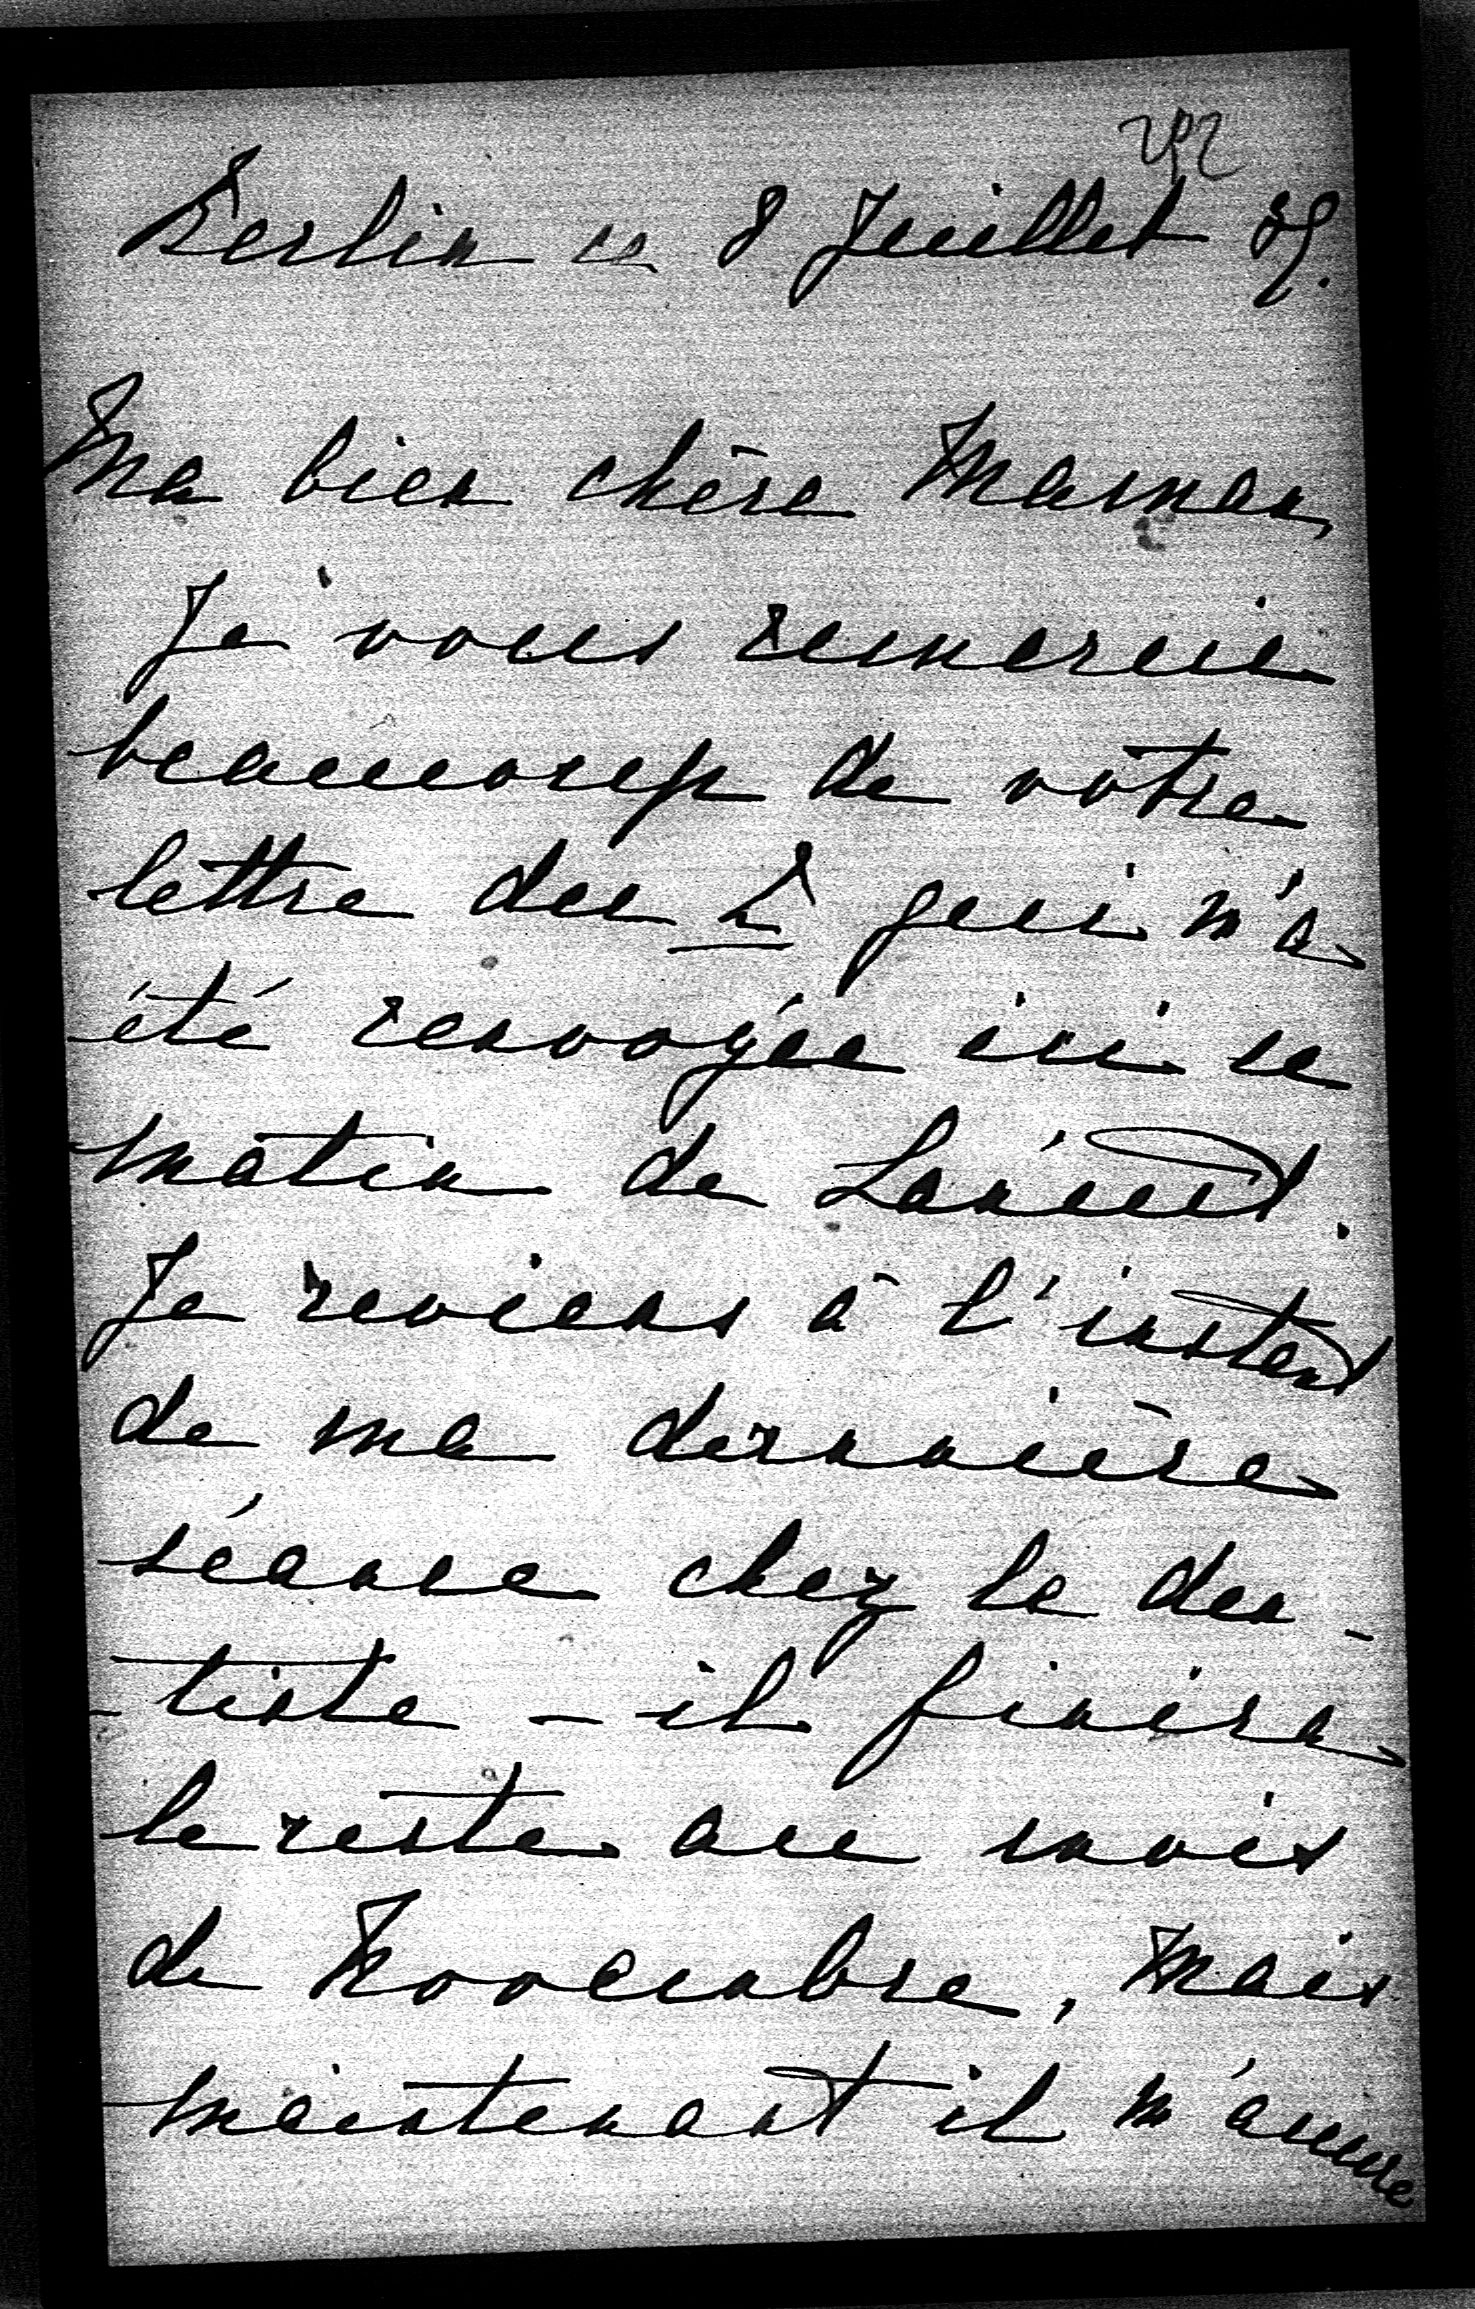 Berlin ce 8 Juillet 89.
Ma bien chère Maman,
Je vous remercie
beaucoup de votre
lettre du 5 qui m'a
été renvoyée ici ce
matin de Lańcut.
Je reviens à l'instant
de ma dernière
séance chez le den-
-tiste - il finira
le reste au mois
de Novembre, mais
maintenant il m'assure